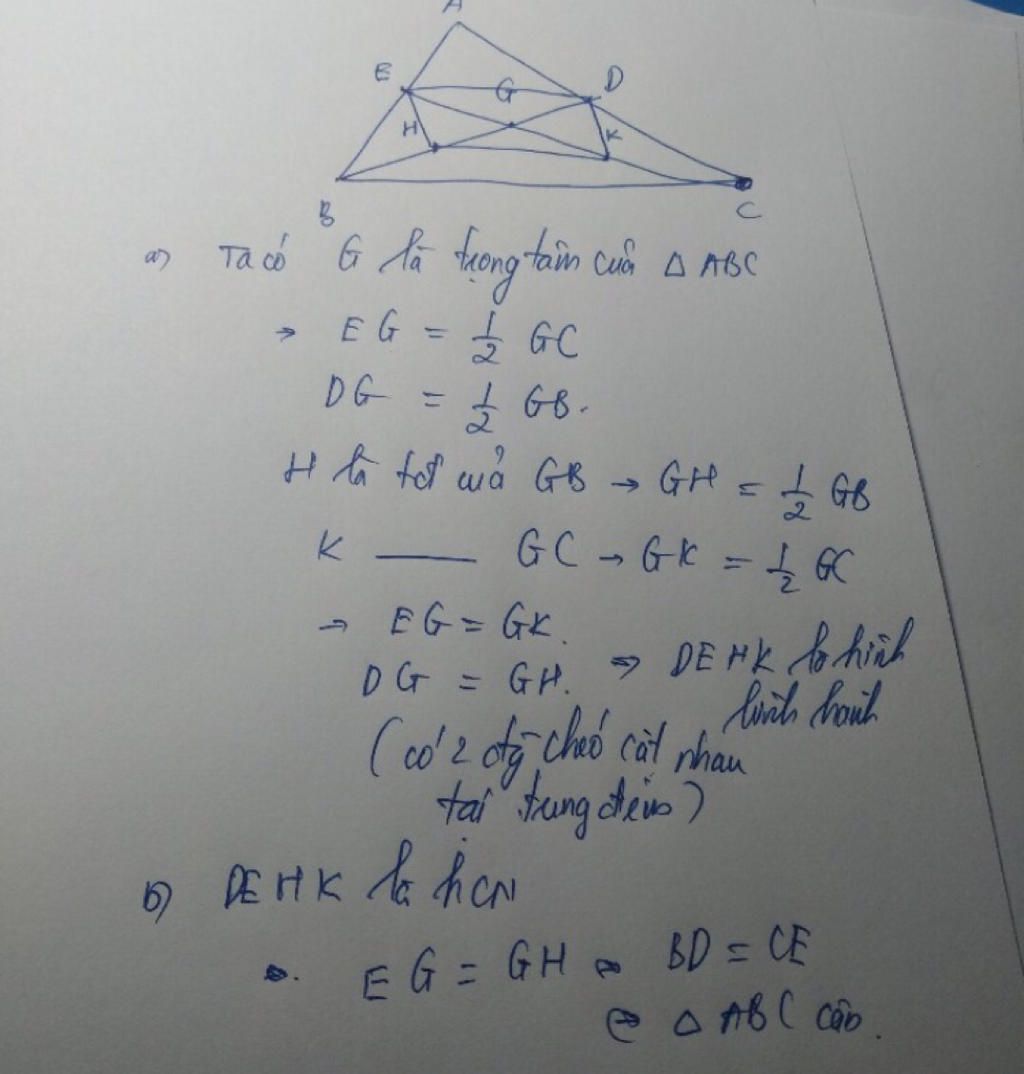 A
E G D
H K
B C
a) Ta có G là trọng tâm của △ ABC
→ EG = 1/2 GC
DG = 1/2 GB.
H là tđ của GB → GH = 1/2 GB
K — GC → GK = 1/2 GC
→ EG = GK.
DG = GH. ⇒ DEHK là hình
bình hành
(có 2 đg chéo cắt nhau
tại trung điểm)
b) DEHK là hCN
EG = GH ⇔ BD = CE
⇔ △ ABC cân.